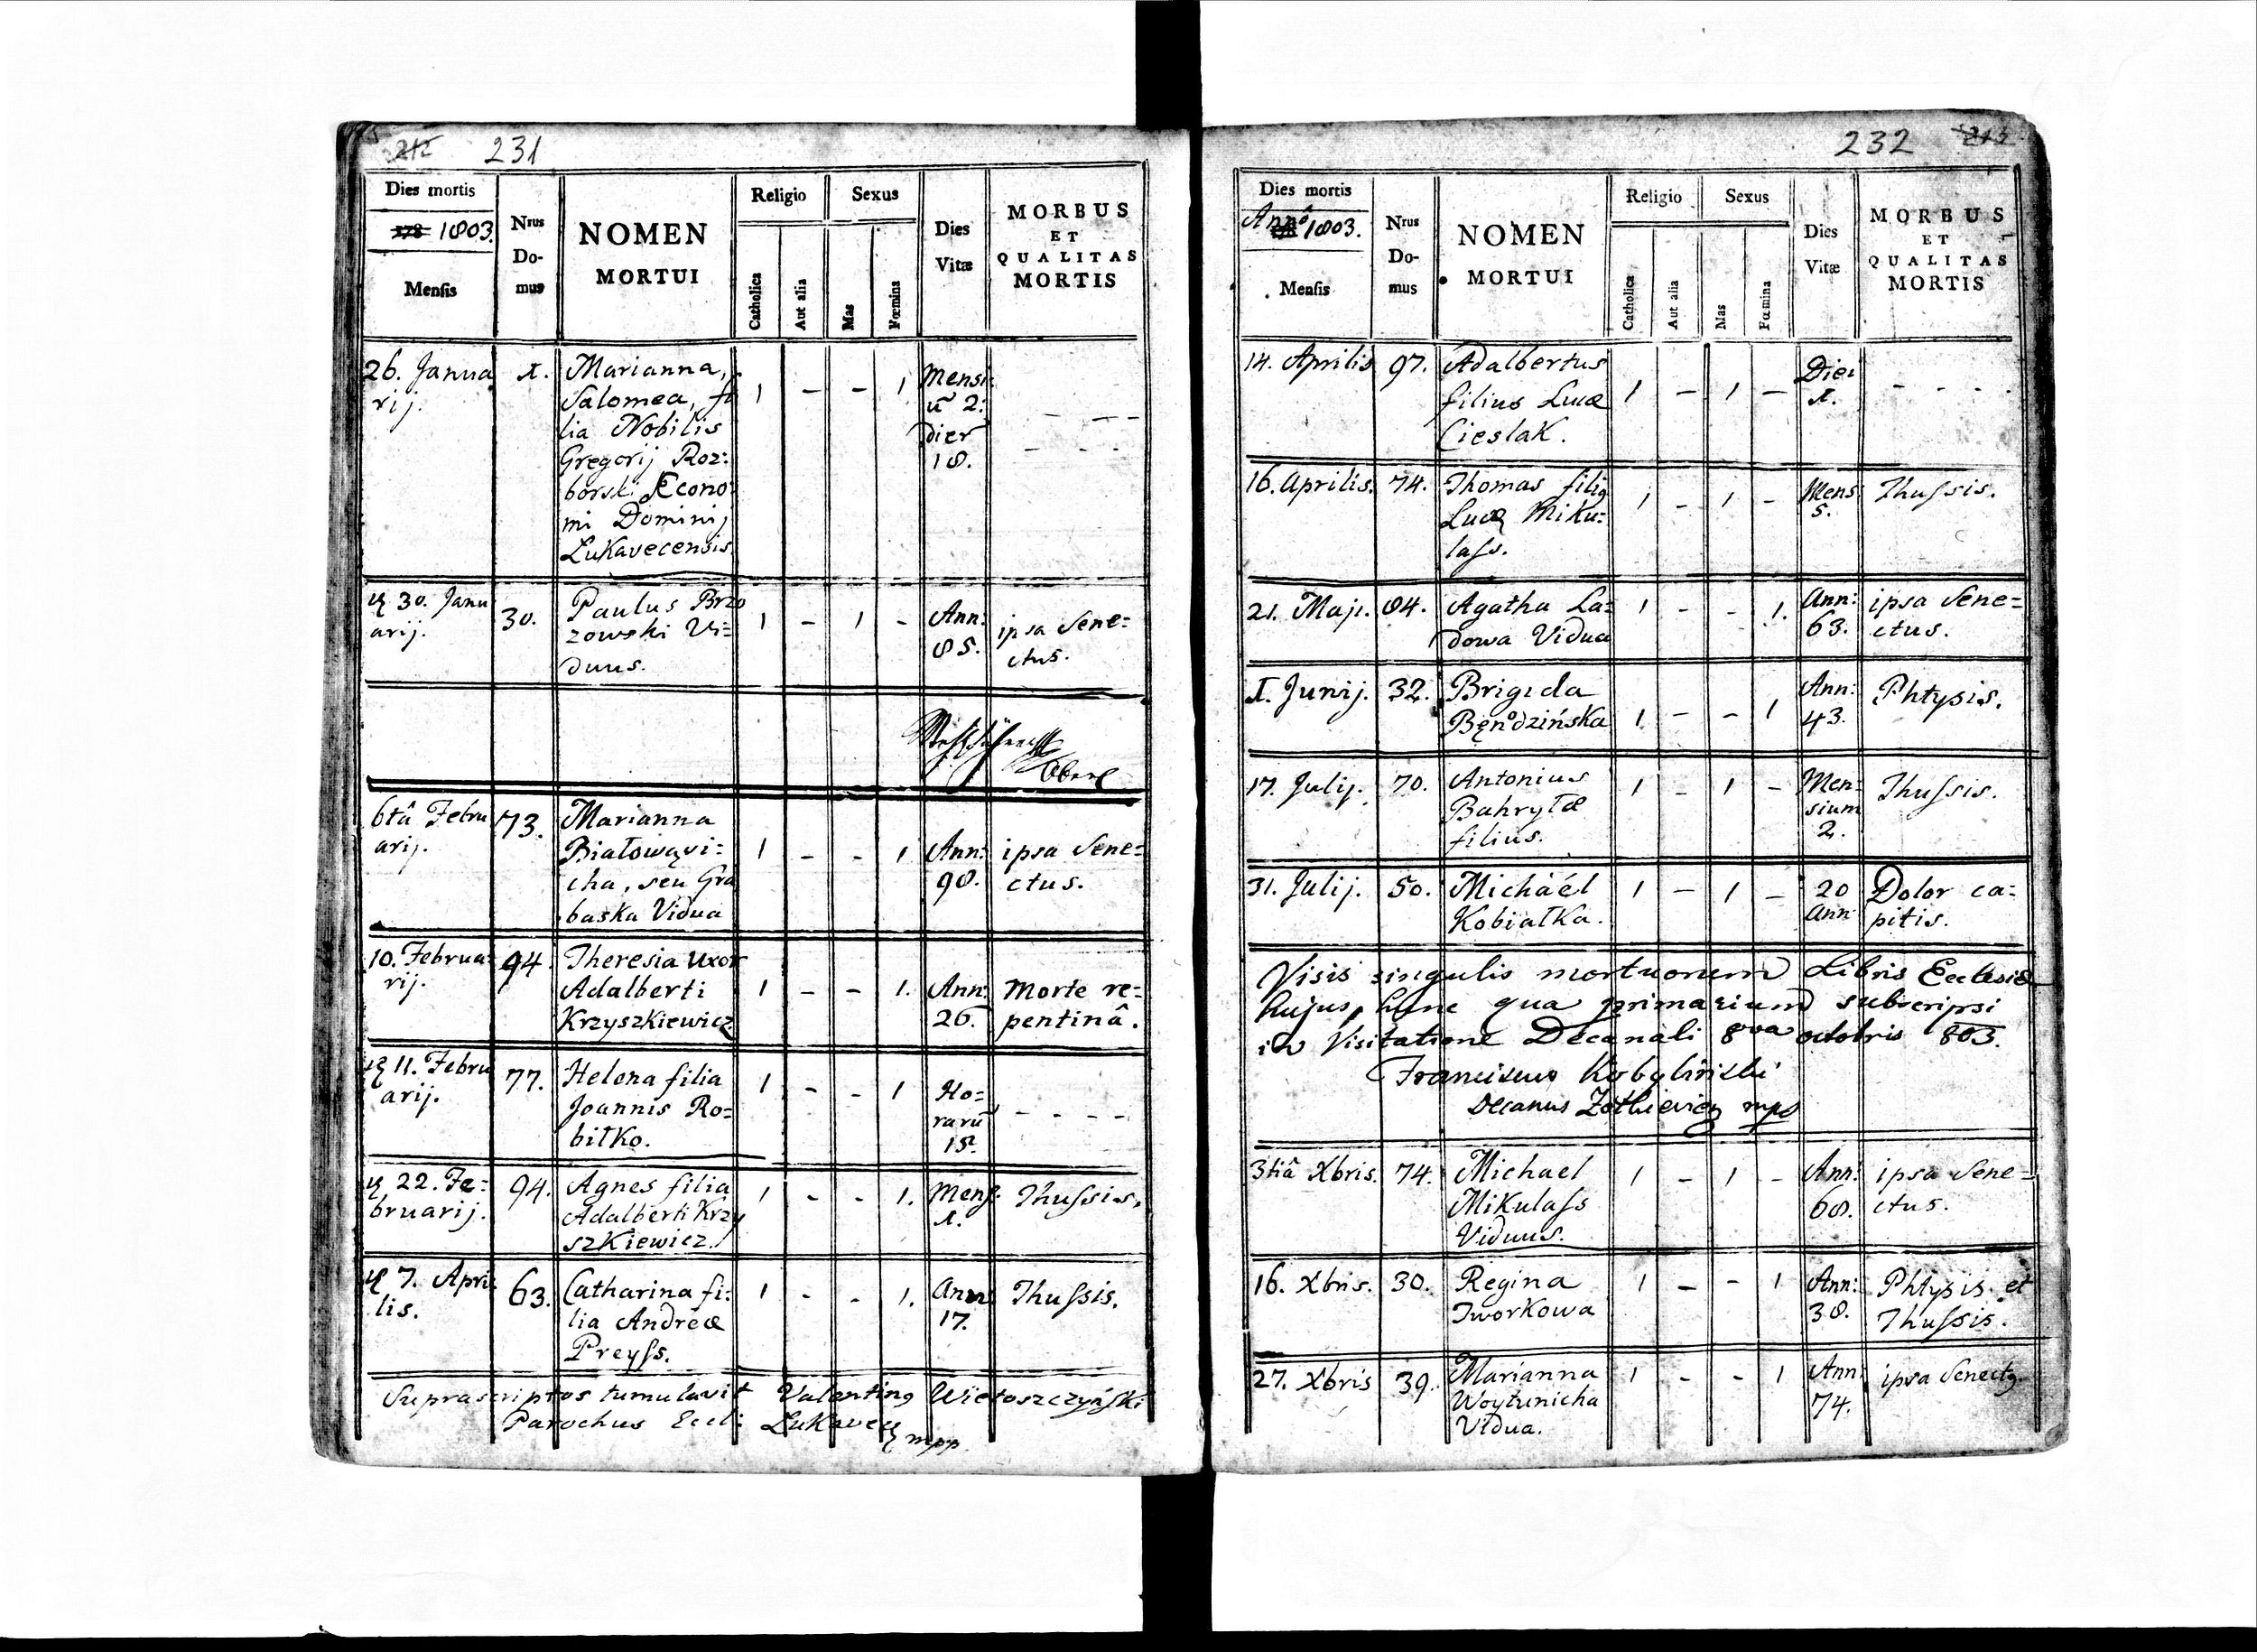 231
Dies mortis
1803.
Mensis
Nrus
Do-
mus
NOMEN
MORTUI
Religio
Catholica
Aut alia
Sexus
Mas
Fœmina
Dies
Vitæ
MORBUS
ET
QUALITAS
MORTIS
26. Janua
rij.
1.
Marianna,
Salomea, fi
lia Nobilis
Gregorij Roz:
borski Œcono
mi Dominij
Lukavecensis
1 - - 1
Mensi
ū 2:
dier
18.
- - -
- - - -
30. Janu
arij.
30.
Paulus Brzo
zowski Vi=
duus.
1 - 1 -
Ann:
85.
ipsa Sene=
ctus.
6tâ Febru
arij.
73.
Marianna
Białowąvi=
cha, seu Gra
baska Vidua
1 - - 1
Ann:
98.
ipsa Sene=
ctus.
10. Februa
rij.
94.
Theresia Uxor
Adalberti
Krzyszkiewicz
1 - - 1.
Ann:
26.
Morte re=
pentinâ.
11. Febru
arij.
77.
Helena filia
Joannis Ro=
biłko.
1 - - 1
Ho=
rarū
15.
- - - -
22. Fe=
bruarij.
94.
Agnes filia
Adalberti Krzy
szkiewicz.
1 - - 1.
Mens.
1.
Thussis.
7. Apri
lis.
63.
Catharina fi=
lia Andreæ
Preyss.
1 - - 1.
Ann
17.
Thussis.
Suprascriptos tumulavit Valentinꝯ Wietoszczyński
Parochus Eccl: Lukavec mpp
232
Dies mortis
Annô 1803.
Mensis
Nrus
Do-
mus
NOMEN
MORTUI
Religio
Catholica
Aut alia
Sexus
Mas
Fœmina
Dies
Vitæ
MORBUS
ET
QUALITAS
MORTIS
14. Aprilis
97.
Adalbertus
filius Lucæ
Cieslak.
1 - 1 -
Diei
1.
- - - -
16. Aprilis.
74.
Thomas filiꝯ
Lucæ Miku=
lass.
1 - 1 -
Mens:
5.
Thussis.
21. Maji.
84.
Agatha La=
dowa Vidua
1 - - 1.
Ann:
63.
ipsa Sene=
ctus.
1. Junij.
32.
Brigida
Bęndzińska
1 - - 1
Ann:
43.
Phtysis.
17. Julij.
70.
Antonius
Bahryłæ
filius.
1 - 1 -
Men=
sium
2.
Thussis.
31. Julij.
50.
Michaél
Kobiałka.
1 - 1 -
20
Ann
Dolor ca=
pitis.
Visis singulis mortuorum Libris Ecclesiæ
hujus, hunc qua primarium subscripsi
in Visitatione Decanali 8va octobris 803.
Franciscus Kobyliński
Decanus mpp
3tiâ Xbris.
74.
Michael
Mikulass
Viduus.
1 - 1 -
Ann:
68.
ipsa Sene=
ctus.
16. Xbris.
30.
Regina
Tworkowa
1 - - 1
Ann:
38.
Phtysis et
Thussis.
27. Xbris
39.
Marianna
Woytunicha
Vidua.
1 - - 1
Ann
74.
ipsa Senectꝯ.